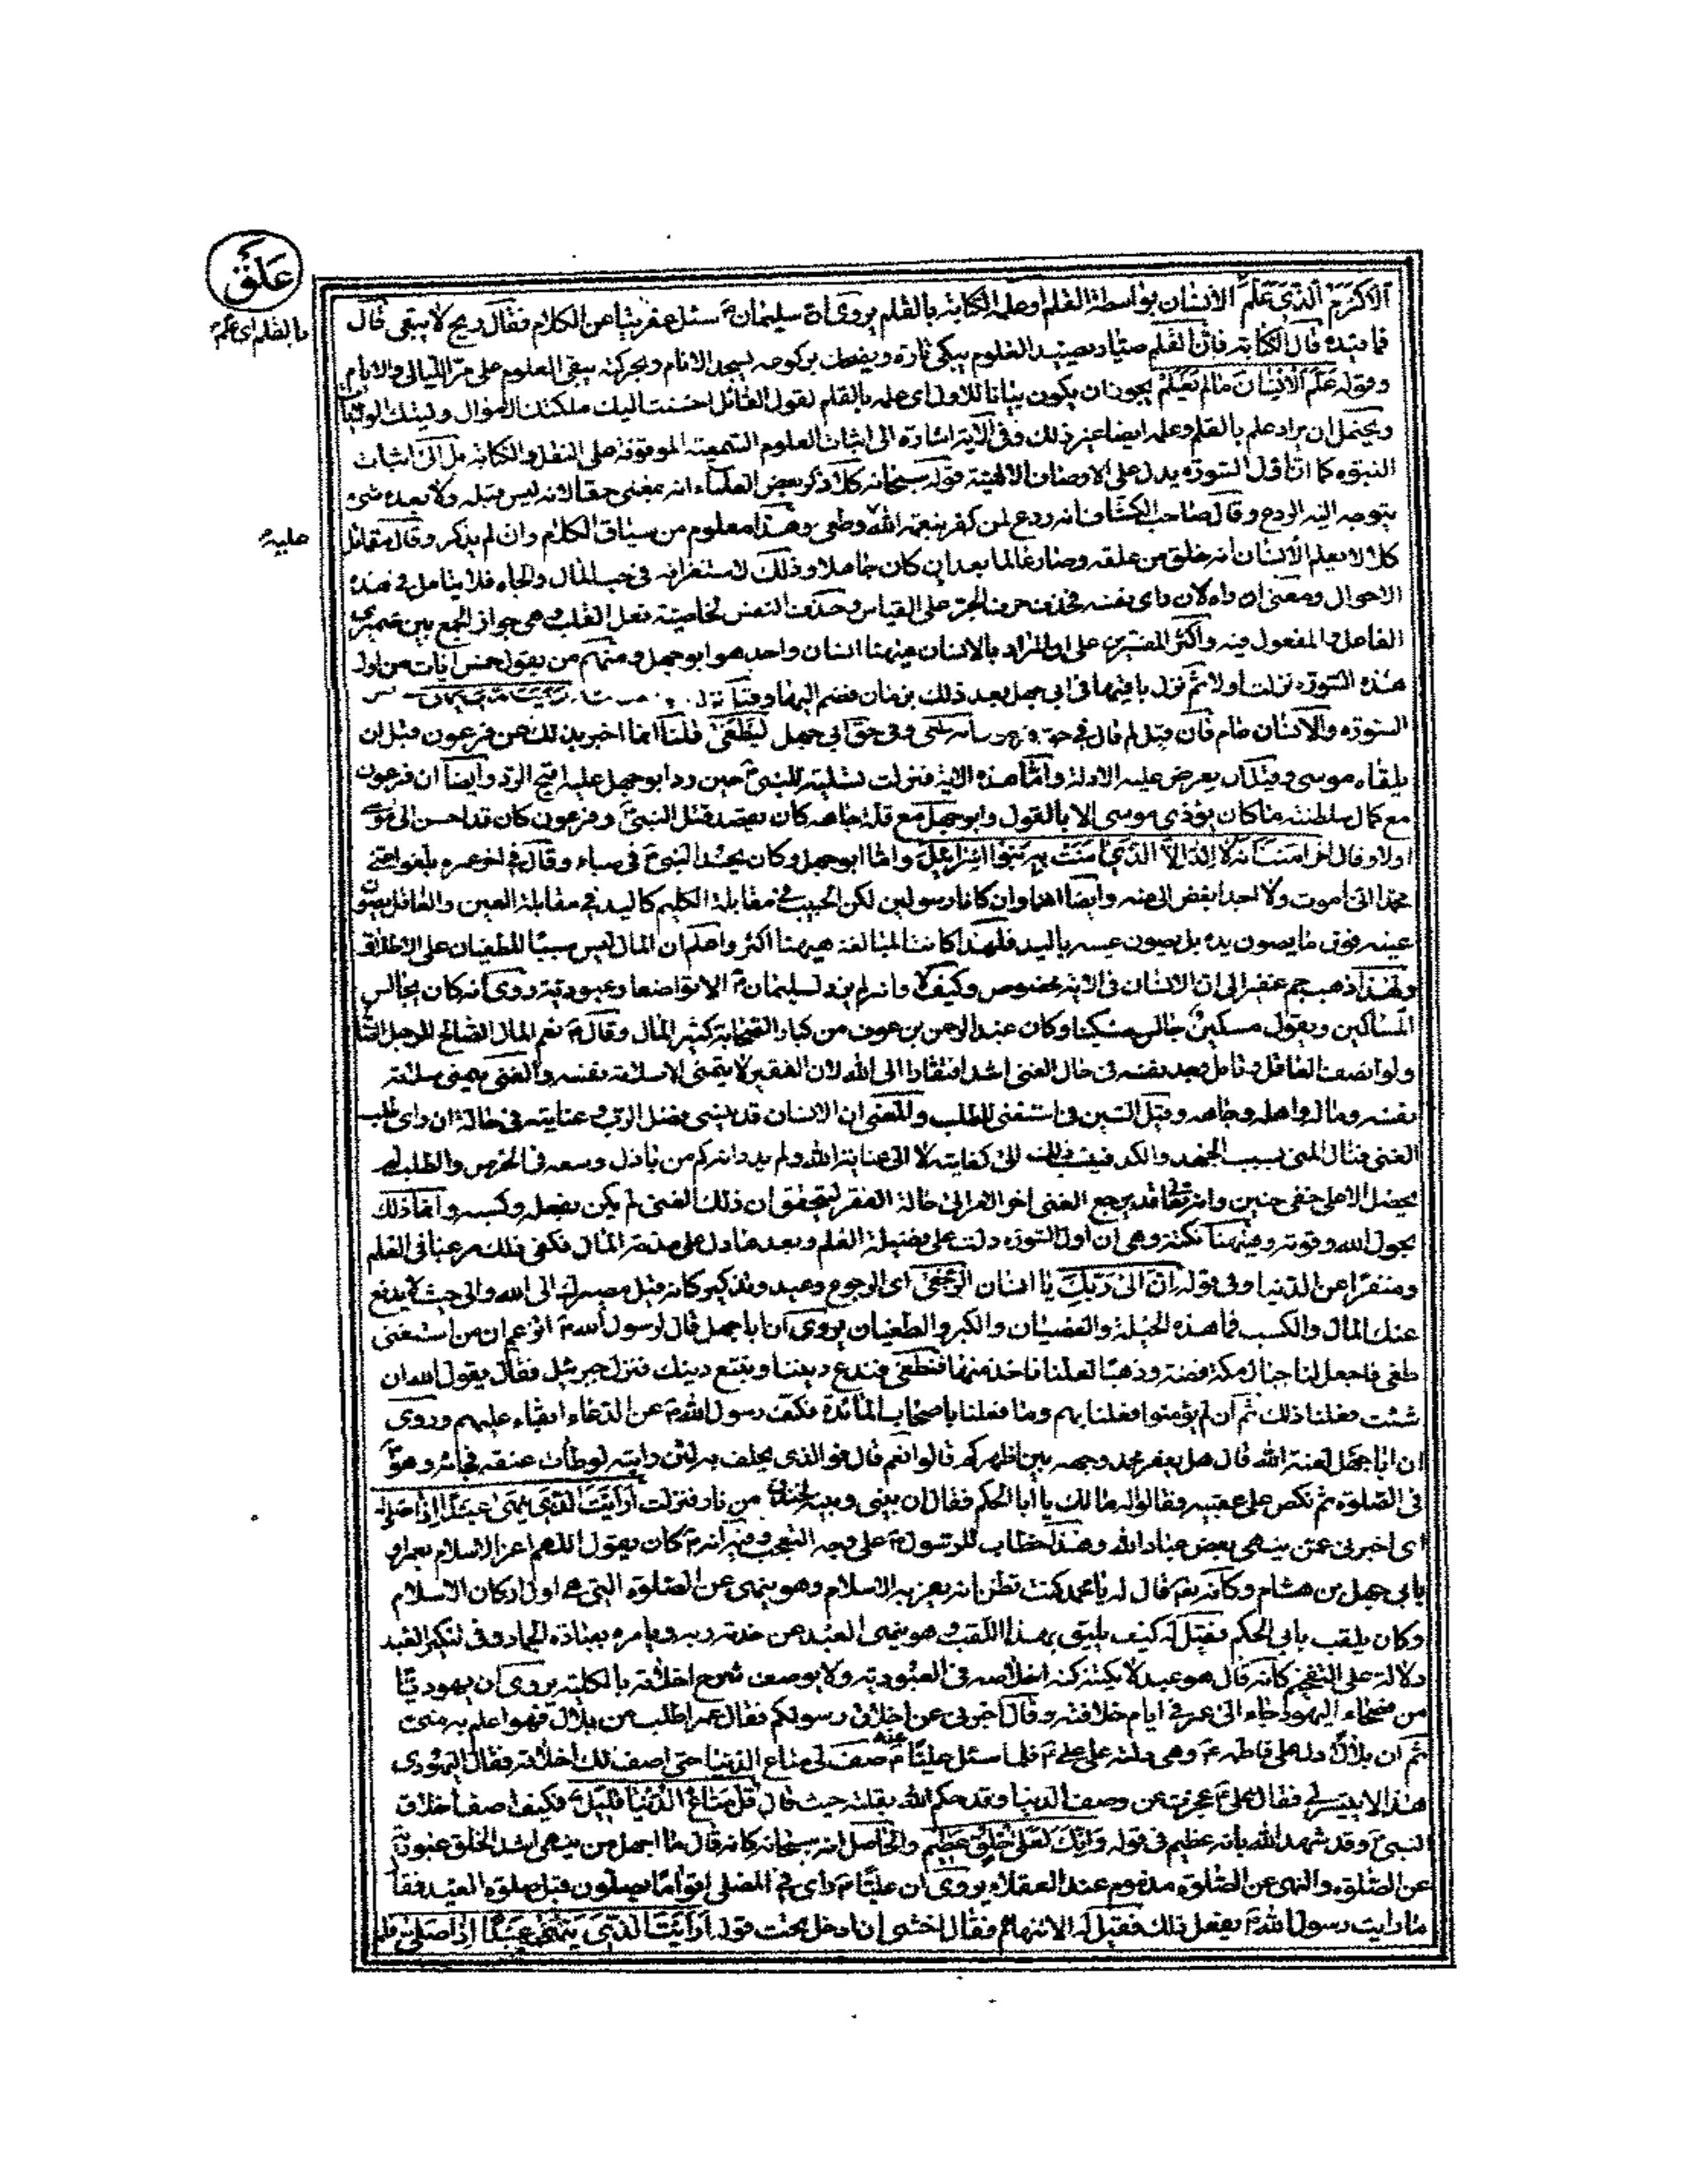 علق
الاكرم الذي علم الانسان بواسطة القلم او علمه الكتابة بالقلم يروى ان سليمان ع سئل عفريتا عن الكلام فقال ريح لا يبقى قال
بالقلم اى علم
فما قيده قال الكتابة فان القلم صياد يصيد العلوم يبكى تارة ويضحك بركوعه يسجد الانام وبحركته يبقى العلوم على مر الليالى والايام
وقوله علم الانسان ما لم يعلم يجوز ان يكون بيانا للاول اى علمه بالقلم كقول القائل احسنت اليك ملكتك الاموال وليتك الولايات
ويحتمل ان يراد علم بالقلم وعلم ايضا غير ذلك وفى الآية اشارة الى اثبات العلوم السمعية الموقوفة على النقل والكتابة من الى اثبات
النبوة كما ان اول السورة يدل على الاوصاف الالهية قوله سبحانه كلا ذكر بعض العلماء انه بمعنى حقا لانه ليس قبله ولا بعده شىء
يتوجه اليه الردع وقال صاحب الكشاف انه ردع لمن كفر بنعمة الله وطغى وهذا معلوم من سياق الكلام وان لم يذكر وقال مقاتل
عليه
كلا لا يعلم الانسان انه خلق من علقة وصار عالما بعد ان كان جاهلا وذلك لاستغراقه فى حب المال والجاه فلا يتامل فى هذه
الاحوال ومعنى ان راه لان راى نفسه فحذف حرف الجر على القياس وحذف النفس لخاصية فعل القلب وهى جواز الجمع بين ضميرى
الفاعل والمفعول فيه واكثر المفسرين على ان المراد بالانسان هيهنا انسان واحد هو ابو جهل ومنهم من يقول خمس ايات من اول
هذه السورة نزلت اولا ثم نزل باقيها فى ابى جهل بعد ذلك بزمان فضم اليها
السورة والانسان عام فان قيل لم قال فى حق طغى وفى حق ابى جهل ليطغى قلنا انما اخبر بذلك عن فرعون قبل ان
يلقاه موسى وقبل ان يعرض عليه الادلة واما هذه الآية فنزلت تسلية للنبى ص حين رد ابو جهل عليه اقبح الرد وايضا ان فرعون
مع كمال سلطنته ما كان يؤذى موسى الا بالقول وابو جهل مع قلة جاهه كان يقصد قتل النبى ص وفرعون كان قد احسن الى موسى
اولا وقال اخرا امنت انه لا اله الا الذي امنت به بنو اسرائيل واما ابو جهل وكان يحسد النبى ص فى صباه وقال فى اخر عمره بلغوا عنى
محمدا انى اموت ولا احد ابغض الى منه وايضا انهما وان كانا رسولين لكن الحبيب فى مقابلة الكليم كاليد فى مقابلة العين والعاقل يصون
عينه فوق ما يصون يده بل يصون عينه باليد فلهذا كانت المبالغة هيهنا اكثر واعلم ان المال ليس سببا للطغيان على الاطلاق
ولهذا ذهب جم غفير الى ان الانسان فى الآية مخصوص وكيف لا وانه لم يزد لسليمان ع الا تواضعا وعبودية وروى انه كان يجالس
المساكين ويقول مسكين جالس مسكينا وكان عبد الرحمن بن عوف من كبار الصحابة كثير المال وقال ص نعم المال الصالح للرجل الصالح
ولو انصف العاقل وتامل يجد نفسه فى حال الغنى اشد افتقارا الى الله لان الفقير لا يتمنى الا سلامة نفسه والغنى يتمنى سلامة
نفسه وماله واهله وجاهه وقيل السين فى استغنى للطلب والمعنى ان الانسان قد ينسى فضل الرب وعنايته فى حالة ان راى طلب
الغنى فنال المنى بسبب الجهد والكد فينسب ذلك الى كفايته لا الى عناية الله ولم يدر انه كم من باذل وسعه فى الحرص والطلب لم
يحصل الا على خفى حنين وانه تعالى قد يرجع الغنى اخر الامر الى حالة الفقر ليتحقق ان ذلك الغنى لم يكن بفعله وكسبه وانما ذلك
بحول الله وقوته وهيهنا نكتة وهى ان اول السورة دلت على فضيلة العلم وبعدها دل على مذمة المال فكفى بذلك مرغبا فى العلم
ومنفرا عن الدنيا وفى قوله ان الى ربك يا انسان الرجعى اى الرجوع وعيد وتذكير كانه قيل مصيرك الى الله والى حيث لا يدفع
عنك المال والكسب فما هذه الحيلة والعصيان والكبر والطغيان يروى ان ابا جهل قال لرسول الله ص اتزعم ان من استغنى
طغى فاجعل لنا جبال مكة فضة وذهبا لعلنا ناخذ منها فنطغى فندع ديننا ونتبع دينك فنزل جبرئيل فقال يقول الله ان
شئت فعلنا ذلك ثم ان لم يؤمنوا فعلنا بهم وما فعلنا باصحاب المائدة فكف رسول الله ص عن الدعاء ابقاء عليهم وروى
ان ابا جهل لعنة الله قال هل يعفر محمد وجهه بين اظهركم قالوا نعم قال فو الذى يحلف به لئن رايته لوطات عنقه فجاءه وهو
فى الصلوة ثم نكص على عقبيه فقالوا له مالك يا ابا الحكم فقال ان بينى وبينه لخندقا من نار فنزلت ارايت الذى ينهى عبدا اذا صلى
اى اخبرنى عمن ينهى بعض عباد الله وهذا خطاب للرسول ص على وجه التعجب وقيل انه ص كان يقول اللهم اعز الاسلام بعمر او
بابى جهل بن هشام وكانه تعم قال له يا محمد كنت تظن انه يعز به الاسلام وهو ينهى عن الصلوة التى هى اول اركان الاسلام
وكان يلقب بابى الحكم فقيل له كيف يليق بهذا اللقب وهو ينهى العبد عن خدمة ربه ويامره بعبادة الجماد وفى تنكير العبد
دلالة على التفخيم كانه قال هو عبد لا يكتنه كنه اخلاصه فى العبودية ولا يوصف شرح اخلاقه بالكلية يروى ان يهوديا
من فصحاء اليهود جاء الى عمر فى ايام خلافته وقال اخبرنى عن اخلاق رسولكم فقال عمر اطلب من بلال فهو اعلم به منى
ثم ان بلال دله على فاطمة ع وهى دلته على على ع فلما سئل عليا ع عنه قال صف لى متاع الدنيا حتى اصف لك اخلاقه فقال اليهودى
هذا لا يتيسر لى فقال على ع عجزت عن وصف الدنيا وقد حكم الله بقلته حيث قال قل متاع الدنيا قليل فكيف اصف اخلاق
النبى ص وقد شهد الله بانه عظيم فى قوله وانك لعلى خلق عظيم والحاصل انه سبحانه كانه قال ما اجهل من ينهى اشد الخلق عبودية
عن الصلوة والنهى عن الصلوة مذموم عند العقلاء يروى ان عليا ع راى فى المصلى اقواما يصلون قبل صلوة العيد فقال
ما رايت رسول الله ص يفعل ذلك فقيل له الا تنهاهم فقال اخشى ان ادخل تحت قوله ارايت الذى ينهى عبدا اذا صلى فلم